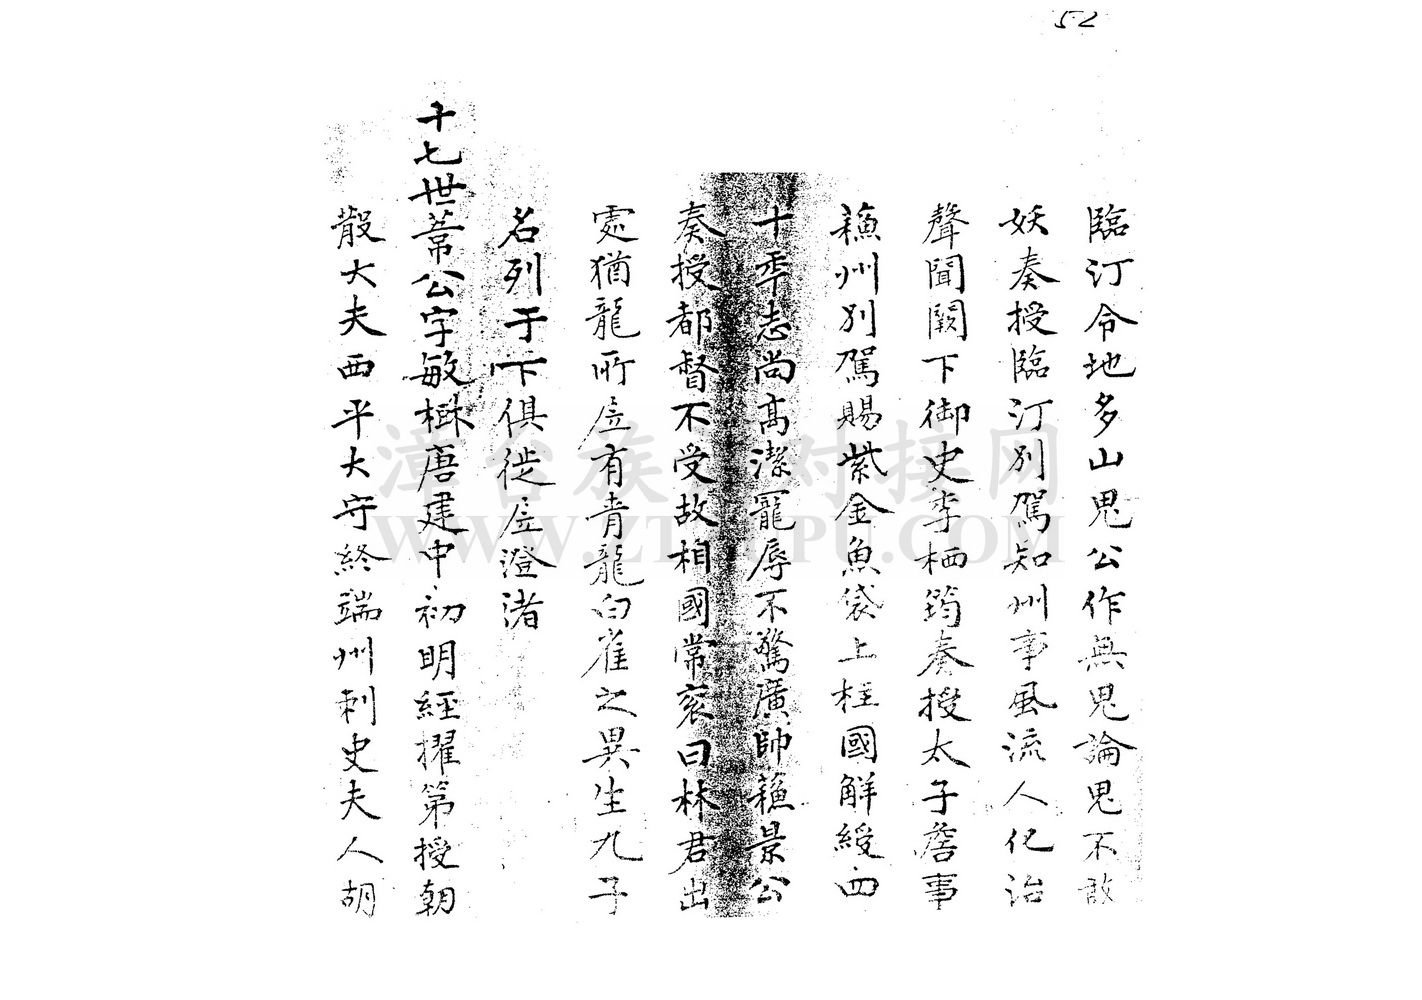 52
臨汀令地多山鬼公作無鬼論鬼不敢
妖奏授臨汀別駕知州事風流人化治
聲聞闕下御史李栖筠奏授太子詹事
蘓州別駕賜紫金魚袋上柱國解綬四
十年志尚高潔寵辱不驚廣帥蘓景公
奏授都督不受故相國常衮曰林君出
處猶龍所居有青龍白雀之異生九子
名列于下俱徙居澄渚
十七世葦公字敏樹唐建中初明經擢第授朝
散大夫西平大守終端州刺史夫人胡
漳台族谱对接网
WWW.ZTZUPU.COM